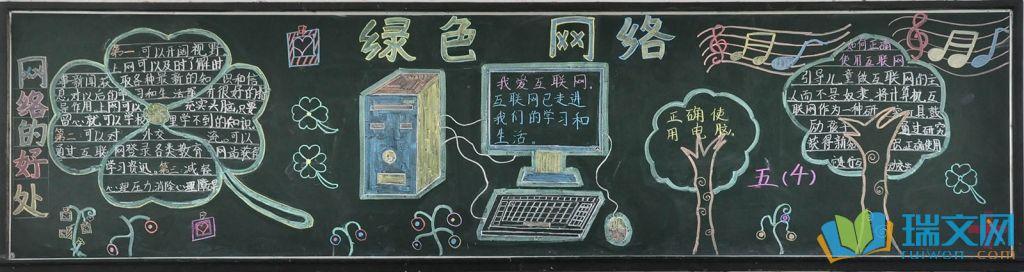 绿色 网络
网络的好处
第一可以开阔视野
上网可以及时了解时
事新闻获取各种最新的知识和信
息对以后的学习和生活
导作用上网可以充实头脑只要
留心就可以学校里学不到的知识
第二可以对外交流可以
通过互联网登录各类教育网站获得
学习资讯.第三减轻
心理压力消除心理障碍
我爱互联网.
互联网已走进
我们的学习和
生活。
正确使
用电脑.
五(4)
如何正确
使用互联网
引导儿童做互联网的主
人而不是奴隶.将计算机互
联网作为一种
通过研究
获得新
正确使用
瑞文网
ruiwen.com